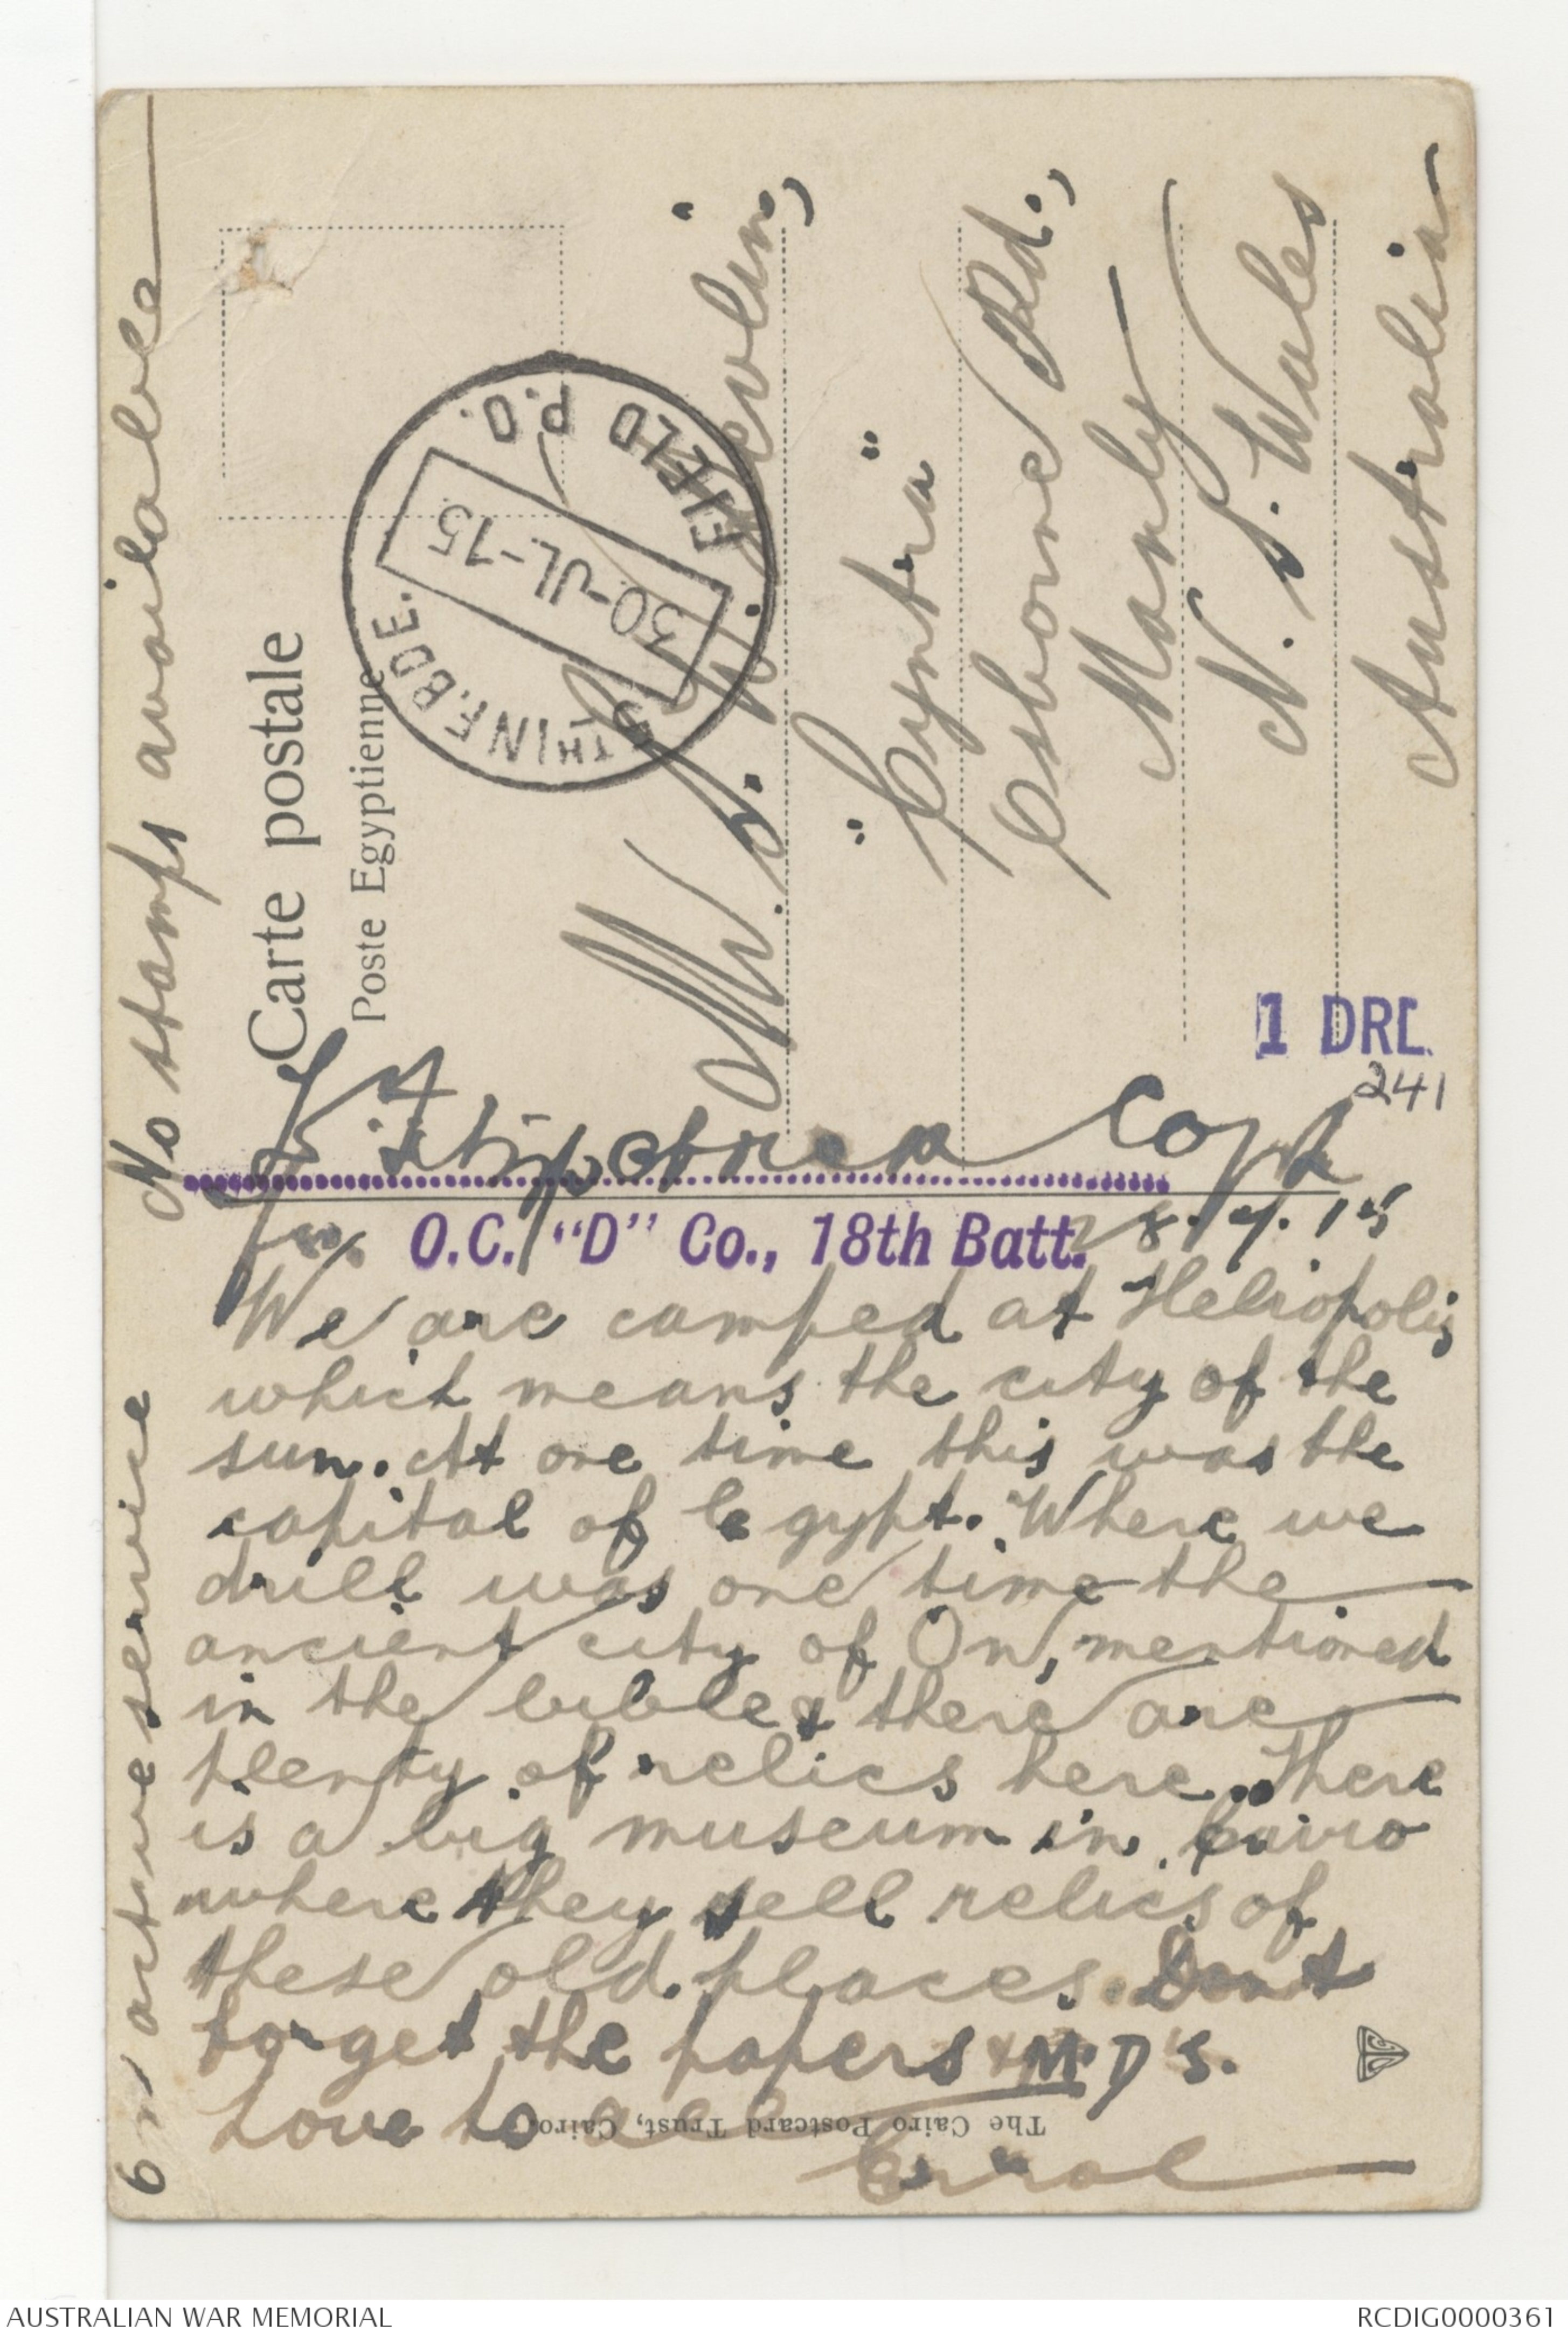 No stamps available
On active service
Carte postale
Poste Egyptienne
5TH INF. BDE.
30-JL-15
FIELD P.O.
Mr. D. H. Devlin,
"Cyntra"
Osborne Rd.,
Manly
N. S. Wales
Australia
1 DRL
241
Capt
for O.C. "D" Co., 18th Batt.
28.7.15
We are camped at Heliopolis
which means the city of the
sun. At one time this was the
capital of Egypt. Where we
drill was one time the
ancient city of On, mentioned
in the bible & there are
plenty of relics here. There
is a big museum in Cairo
where they sell relics of
these old places. Dont
forget the papers & M.D's.
Love to all
Errol
The Cairo Postcard Trust, Cairo.
AUSTRALIAN WAR MEMORIAL
RCDIG0000361